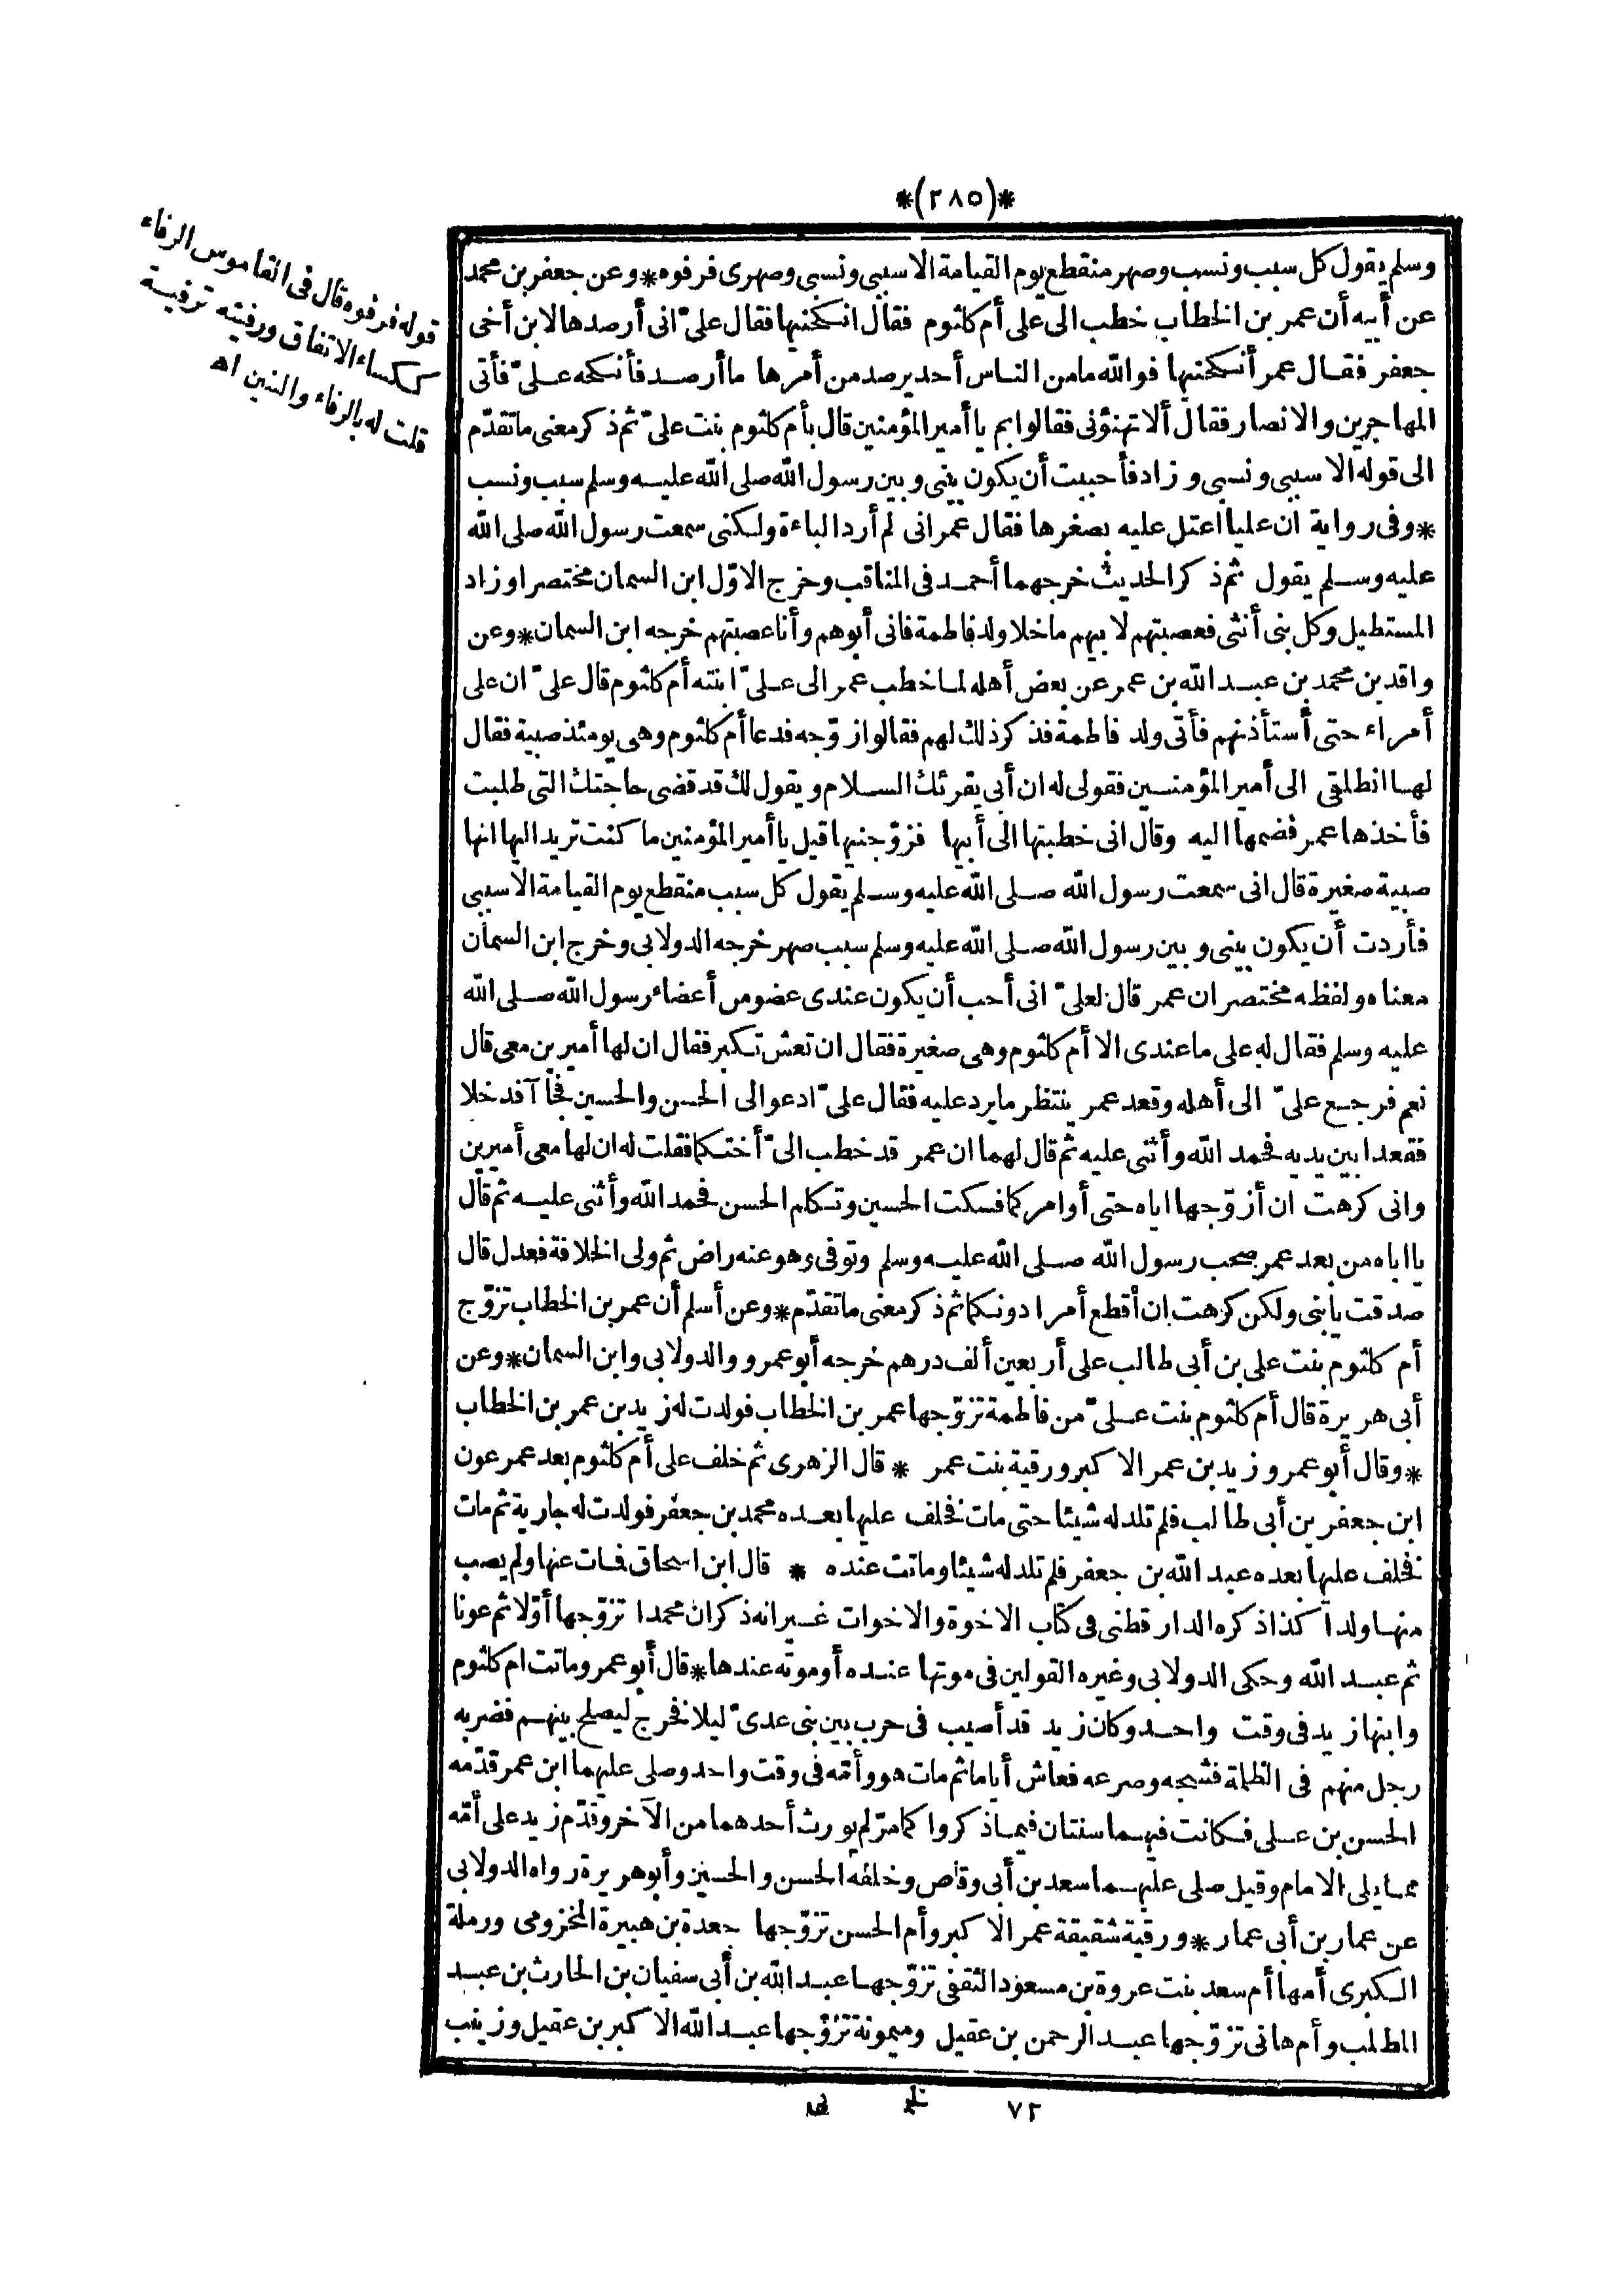 *(٢٨٥)*
وسلم يقول كل سبب ونسب وصهر منقطع يوم القيامة الا سببى ونسبى وصهرى فرفوه * وعن جعفر بن محمد
عن أبيه أن عمر بن الخطاب خطب الى على أم كلثوم فقال انكحنيها فقال علىّ انى أرصدها لابن أخى
جعفر فقال عمر أنكحنيها فوالله ما من الناس أحد يرصد من أمرها ما أرصد فأنكحه علىّ فأتى
المهاجرين والانصار فقال ألا تهنؤنى فقالوا بم يا أمير المؤمنين قال بأم كلثوم بنت علىّ ثم ذكر معنى ما تقدّم
الى قوله الا سببى ونسبى وزاد فأحببت أن يكون بينى وبين رسول الله صلى الله عليه وسلم سبب ونسب
* وفى رواية ان عليا اعتل عليه بصغرها فقال عمر انى لم أرد الباءة ولكنى سمعت رسول الله صلى الله
عليه وسلم يقول ثم ذكر الحديث خرجهما أحمد فى المناقب وخرج الاوّل ابن السمان مختصرا وزاد
المستطيل وكل بنى أنثى فعصبتهم لابيهم ما خلا ولد فاطمة فانى أبوهم وأنا عصبتهم خرجه ابن السمان * وعن
واقد بن محمد بن عبد الله بن عمر عن بعض أهله لما خطب عمر الى علىّ ابنته أم كلثوم قال علىّ ان على
أمراء حتى أستأذنهم فأتى ولد فاطمة فذكر ذلك لهم فقالوا زوّجه فدعا أم كلثوم وهى يومئذ صبية فقال
لها انطلقى الى أمير المؤمنين فقولى له ان أبى يقرئك السلام ويقول لك قد قضى حاجتك التى طلبت
فأخذها عمر فضمها اليه وقال انى خطبتها الى أبيها فزوّجنيها قيل يا أمير المؤمنين ما كنت تريد اليها انها
صبية صغيرة قال انى سمعت رسول الله صلى الله عليه وسلم يقول كل سبب منقطع يوم القيامة الا سببى
فأردت أن يكون بينى وبين رسول الله صلى الله عليه وسلم سبب صهر خرجه الدولابى وخرج ابن السمان
معناه ولفظه مختصر ان عمر قال لعلىّ انى أحب أن يكون عندى عضو من أعضاء رسول الله صلى الله
عليه وسلم فقال له على ما عندى الا أم كلثوم وهى صغيرة فقال ان تعش تكبر فقال ان لها أميرين معى قال
نعم فرجع علىّ الى أهله وقعد عمر ينتظر ما يرد عليه فقال علىّ ادعوا لى الحسن والحسين فجاآ فدخلا
فقعدا بين يديه فحمد الله وأثنى عليه ثم قال لهما ان عمر قد خطب الىّ أختكما فقلت له ان لها معى أميرين
وانى كرهت ان أزوّجها اياه حتى أوامركما فسكت الحسين وتكلم الحسن فحمد الله وأثنى عليه ثم قال
يا اباه من بعد عمر صحب رسول الله صلى الله عليه وسلم وتوفى وهو عنه راض ثم ولى الخلافة فعدل قال
صدقت يا بنى ولكن كرهت ان أقطع أمرا دونكما ثم ذكر معنى ما تقدّم * وعن أسلم أن عمر بن الخطاب تزوّج
أم كلثوم بنت على بن أبى طالب على أربعين ألف درهم خرجه أبو عمرو والدولابى وابن السمان * وعن
أبى هريرة قال أم كلثوم بنت علىّ من فاطمة تزوّجها عمر بن الخطاب فولدت له زيد بن عمر بن الخطاب
* وقال أبو عمرو زيد بن عمر الاكبر ورقية بنت عمر * قال الزهرى ثم خلف على أم كلثوم بعد عمر عون
ابن جعفر بن أبى طالب فلم تلد له شيئا حتى مات فخلف عليها بعده محمد بن جعفر فولدت له جارية ثم مات
فخلف عليها بعده عبد الله بن جعفر فلم تلد له شيئا وماتت عنده * قال ابن اسحاق فمات عنها ولم يصب
منها ولدا كذا ذكره الدارقطنى فى كتاب الاخوة والاخوات غير انه ذكر ان محمدا تزوّجها أوّلا ثم عونا
ثم عبد الله وحكى الدولابى وغيره القولين فى موتها عنده أو موته عندها * قال أبو عمرو وماتت ام كلثوم
وابنها زيد فى وقت واحد وكان زيد قد أصيب فى حرب بين بنى عدىّ ليلا فخرج ليصلح بينهم فضربه
رجل منهم فى الظلمة فشجه وصرعه فعاش أياما ثم مات هو وأمّه فى وقت واحد وصلى عليهما ابن عمر قدّمه
الحسن بن على فكانت فيهما سنتان فيما ذكروا كما مرّ لم يورث أحدهما من الآخر وقدّم زيد على أمّه
مما يلى الامام وقيل صلى عليهما سعد بن أبى وقاص وخلفه الحسن والحسين وأبو هريرة رواه الدولابى
عن عمار بن أبى عمار * ورقية شقيقة عمر الاكبر وأم الحسن تزوّجها جعدة بن هبيرة المخزومى ورملة
الكبرى أمها أم سعد بنت عروة بن مسعود الثقفى تزوّجها عبد الله بن أبى سفيان بن الحارث بن عبد
المطلب وأم هانى تزوّجها عبد الرحمن بن عقيل وميمونة تزوّجها عبد الله الاكبر بن عقيل وزينب
قوله فرفوه قال فى القاموس الرفاء
ككساء الاتفاق ورفيته ترفية
قلت له بالرفاء والبنين اه
٧٢